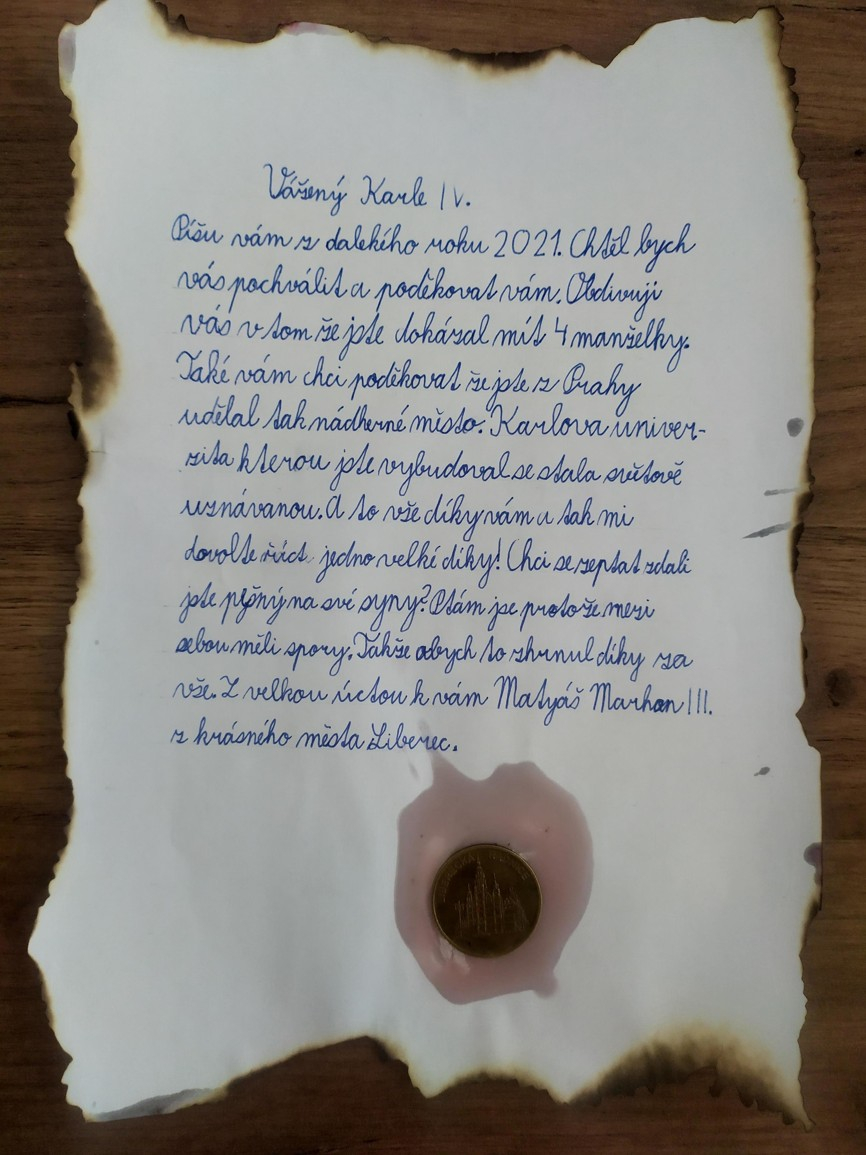 Vážený Karle IV.
Píšu vám z dalekého roku 2021. Chtěl bych
vás pochválit a poděkovat vám. Obdivuji
vás v tom že jste dokázal mít 4 manželky.
Také vám chci poděkovat že jste z Prahy
udělal tak nádherné město. Karlova univer-
zita kterou jste vybudoval se stala světově
uznávanou. A to vše díky vám a tak mi
dovolte říct jedno velké díky! Chci se zeptat zdali
jste pyšný na své syny? Ptám jse protože mezi
sebou měli spory. Takže abych to shrnul díky za
vše. Z velkou úctou k vám Matyáš Marhan III.
z krásného města Liberec.